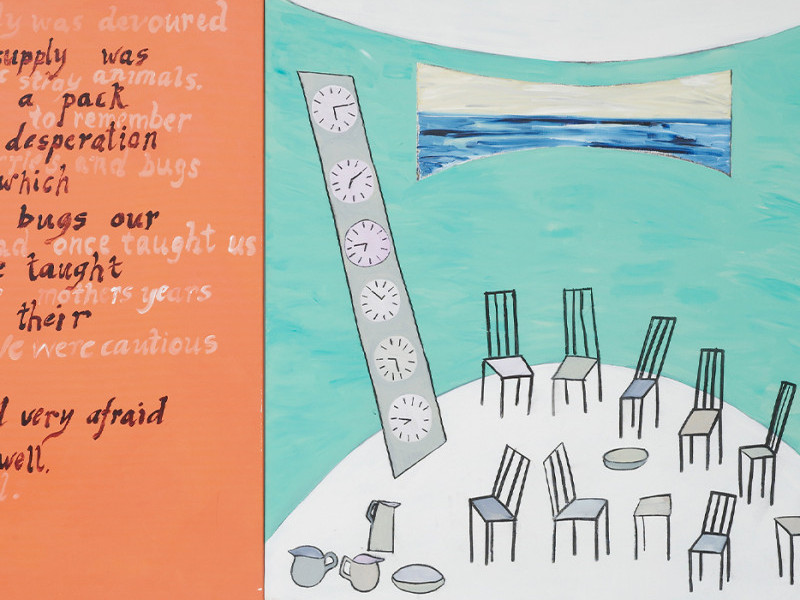 ly was devoured
supply was
stray animals.
a pack
to remember
desperation
and bugs
which
bugs our
ad once taught us
e taught
mothers years
their
We were cautious
d very afraid
well,